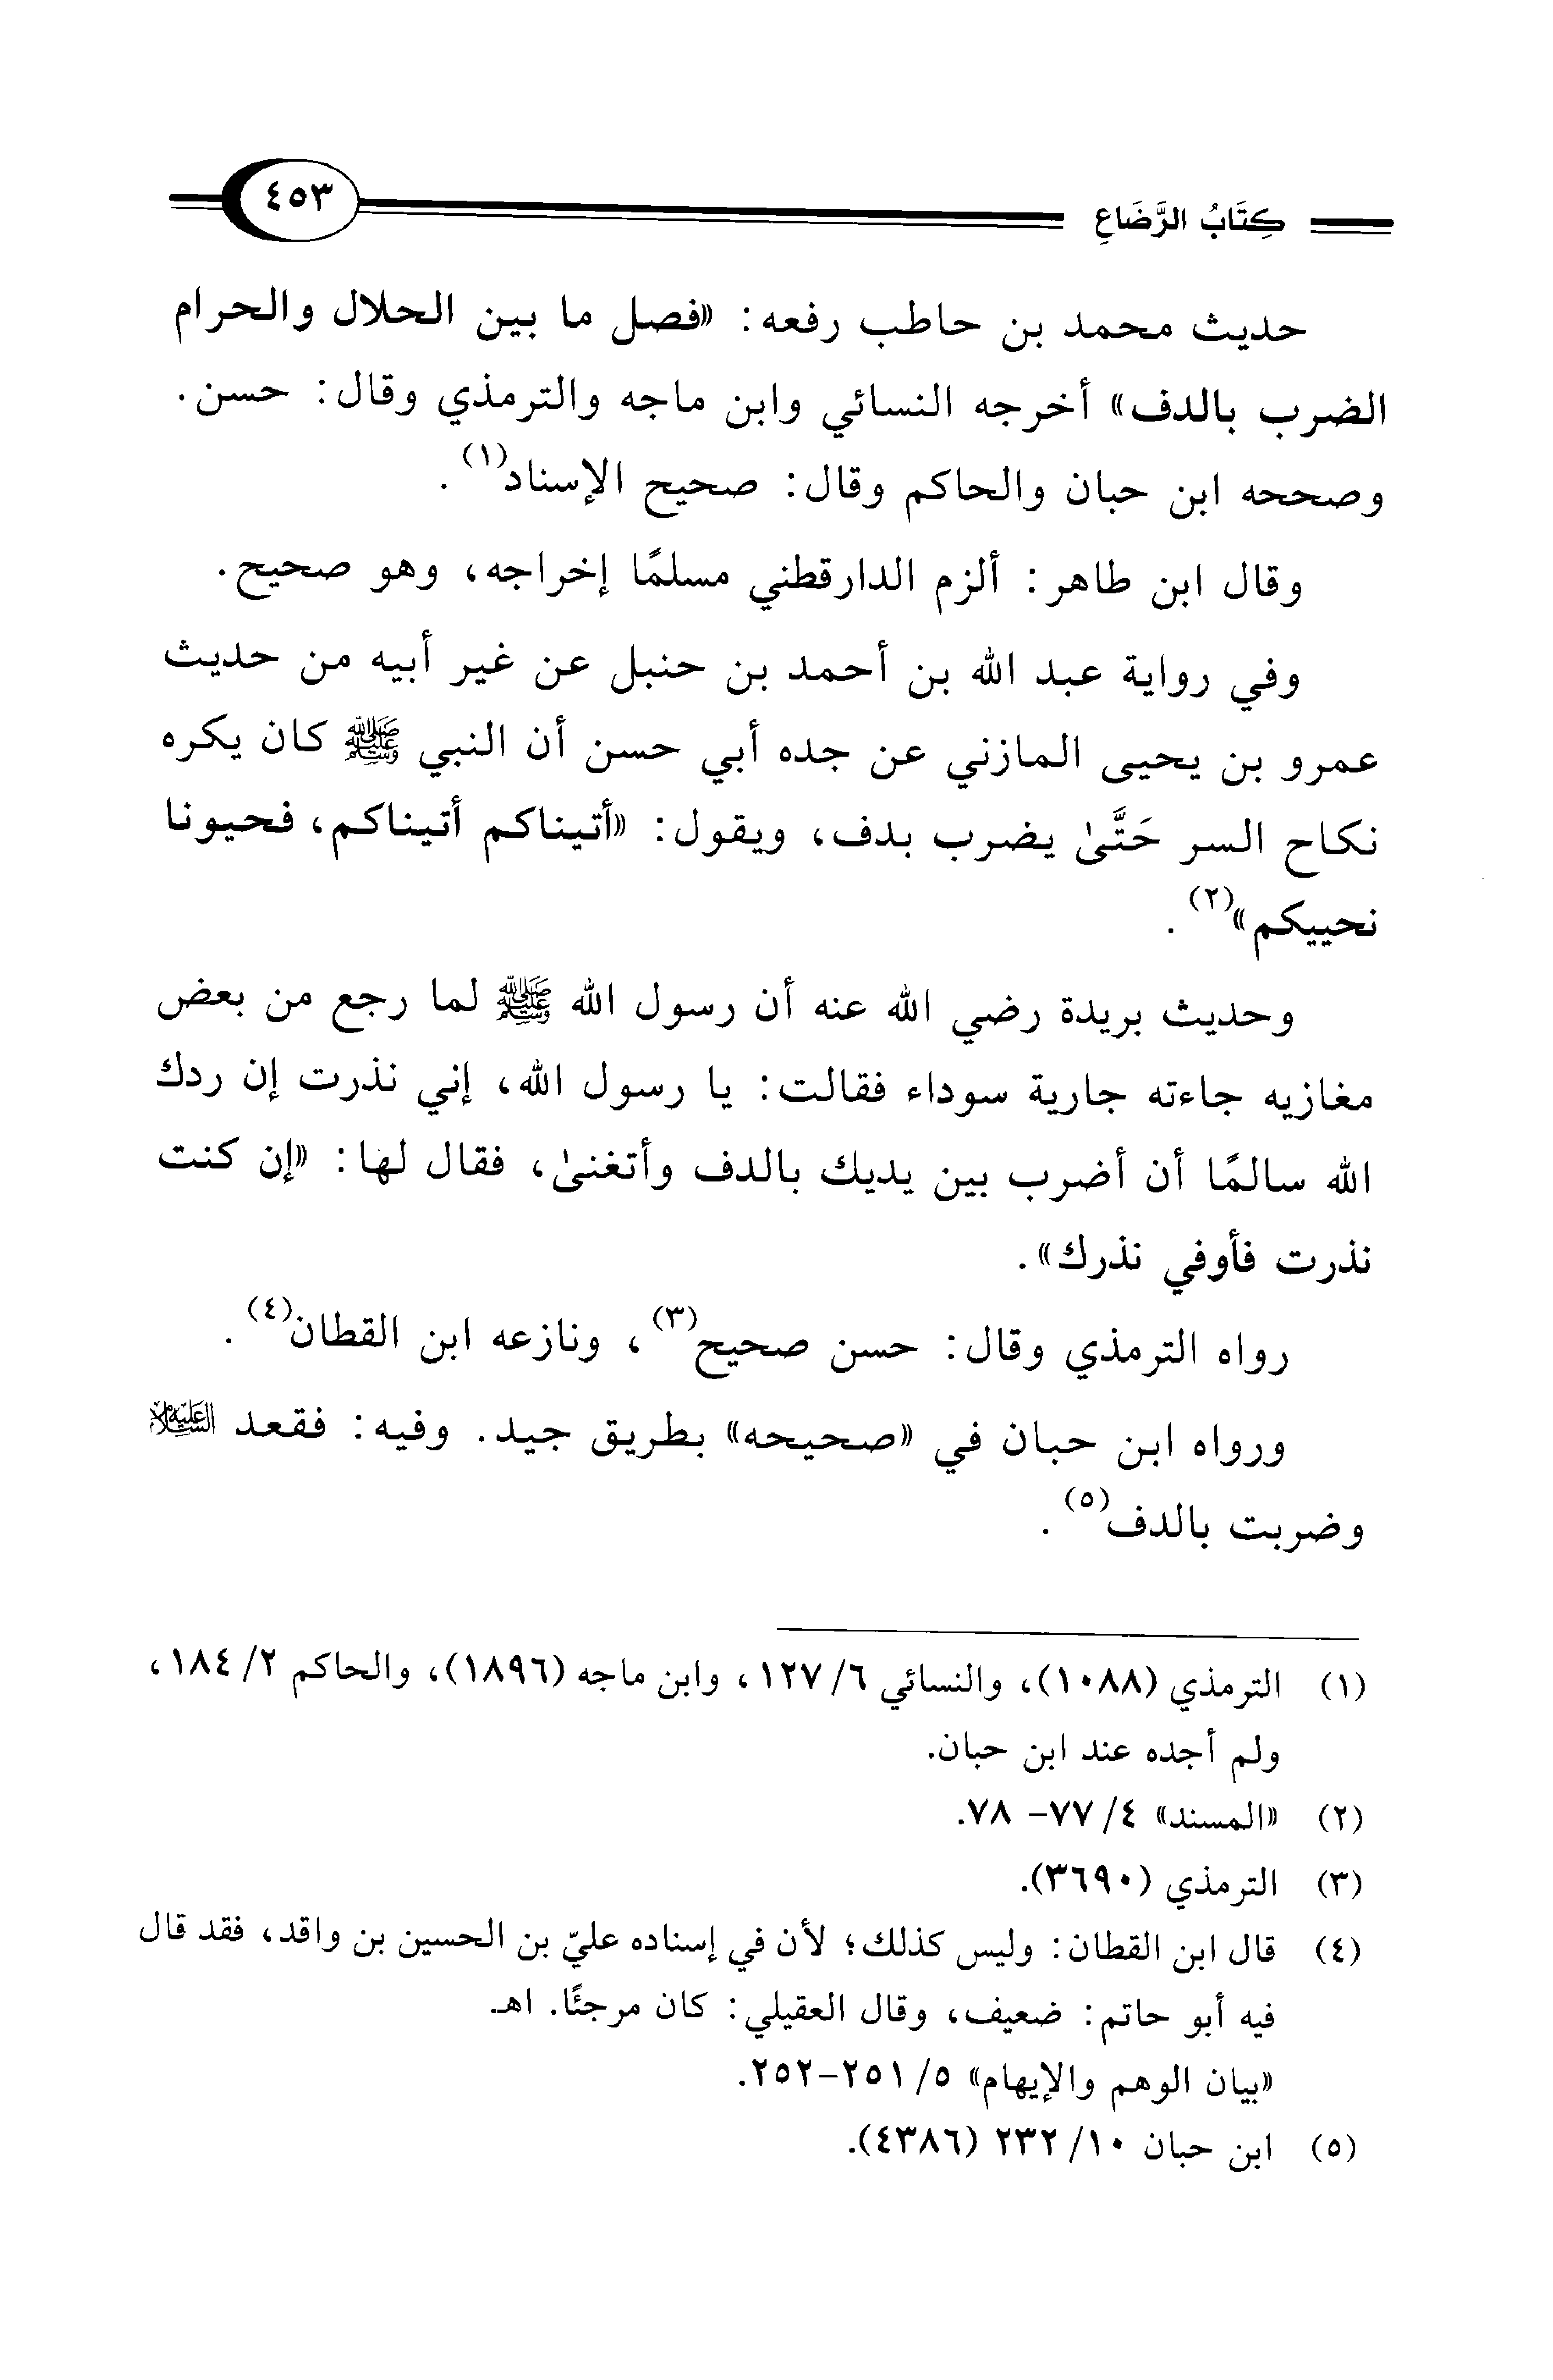 كِتَابُ الرَّضَاعِ ٤٥٣
حديث محمد بن حاطب رفعه: «فصل ما بين الحلال والحرام
الضرب بالدف» أخرجه النسائي وابن ماجه والترمذي وقال: حسن.
وصححه ابن حبان والحاكم وقال: صحيح الإسناد(١).
وقال ابن طاهر: ألزم الدارقطني مسلمًا إخراجه، وهو صحيح.
وفي رواية عبد الله بن أحمد بن حنبل عن غير أبيه من حديث
عمرو بن يحيى المازني عن جده أبي حسن أن النبي ﷺ كان يكره
نكاح السر حَتَّىٰ يضرب بدف، ويقول: «أتيناكم أتيناكم، فحيونا
نحييكم»(٢).
وحديث بريدة رضي الله عنه أن رسول الله ﷺ لما رجع من بعض
مغازيه جاءته جارية سوداء فقالت: يا رسول الله، إني نذرت إن ردك
الله سالمًا أن أضرب بين يديك بالدف وأتغنىٰ، فقال لها: «إن كنت
نذرت فأوفي نذرك».
رواه الترمذي وقال: حسن صحيح(٣)، ونازعه ابن القطان(٤).
ورواه ابن حبان في «صحيحه» بطريق جيد. وفيه: فقعد عليه السلام
وضربت بالدف(٥).
(١) الترمذي (١٠٨٨)، والنسائي ٦/ ١٢٧، وابن ماجه (١٨٩٦)، والحاكم ٢/ ١٨٤،
ولم أجده عند ابن حبان.
(٢) «المسند» ٤/ ٧٧- ٧٨.
(٣) الترمذي (٣٦٩٠).
(٤) قال ابن القطان: وليس كذلك؛ لأن في إسناده عليّ بن الحسين بن واقد، فقد قال
فيه أبو حاتم: ضعيف، وقال العقيلي: كان مرجئًا. اهـ.
«بيان الوهم والإيهام» ٥/ ٢٥١-٢٥٢.
(٥) ابن حبان ١٠/ ٢٣٢ (٤٣٨٦).